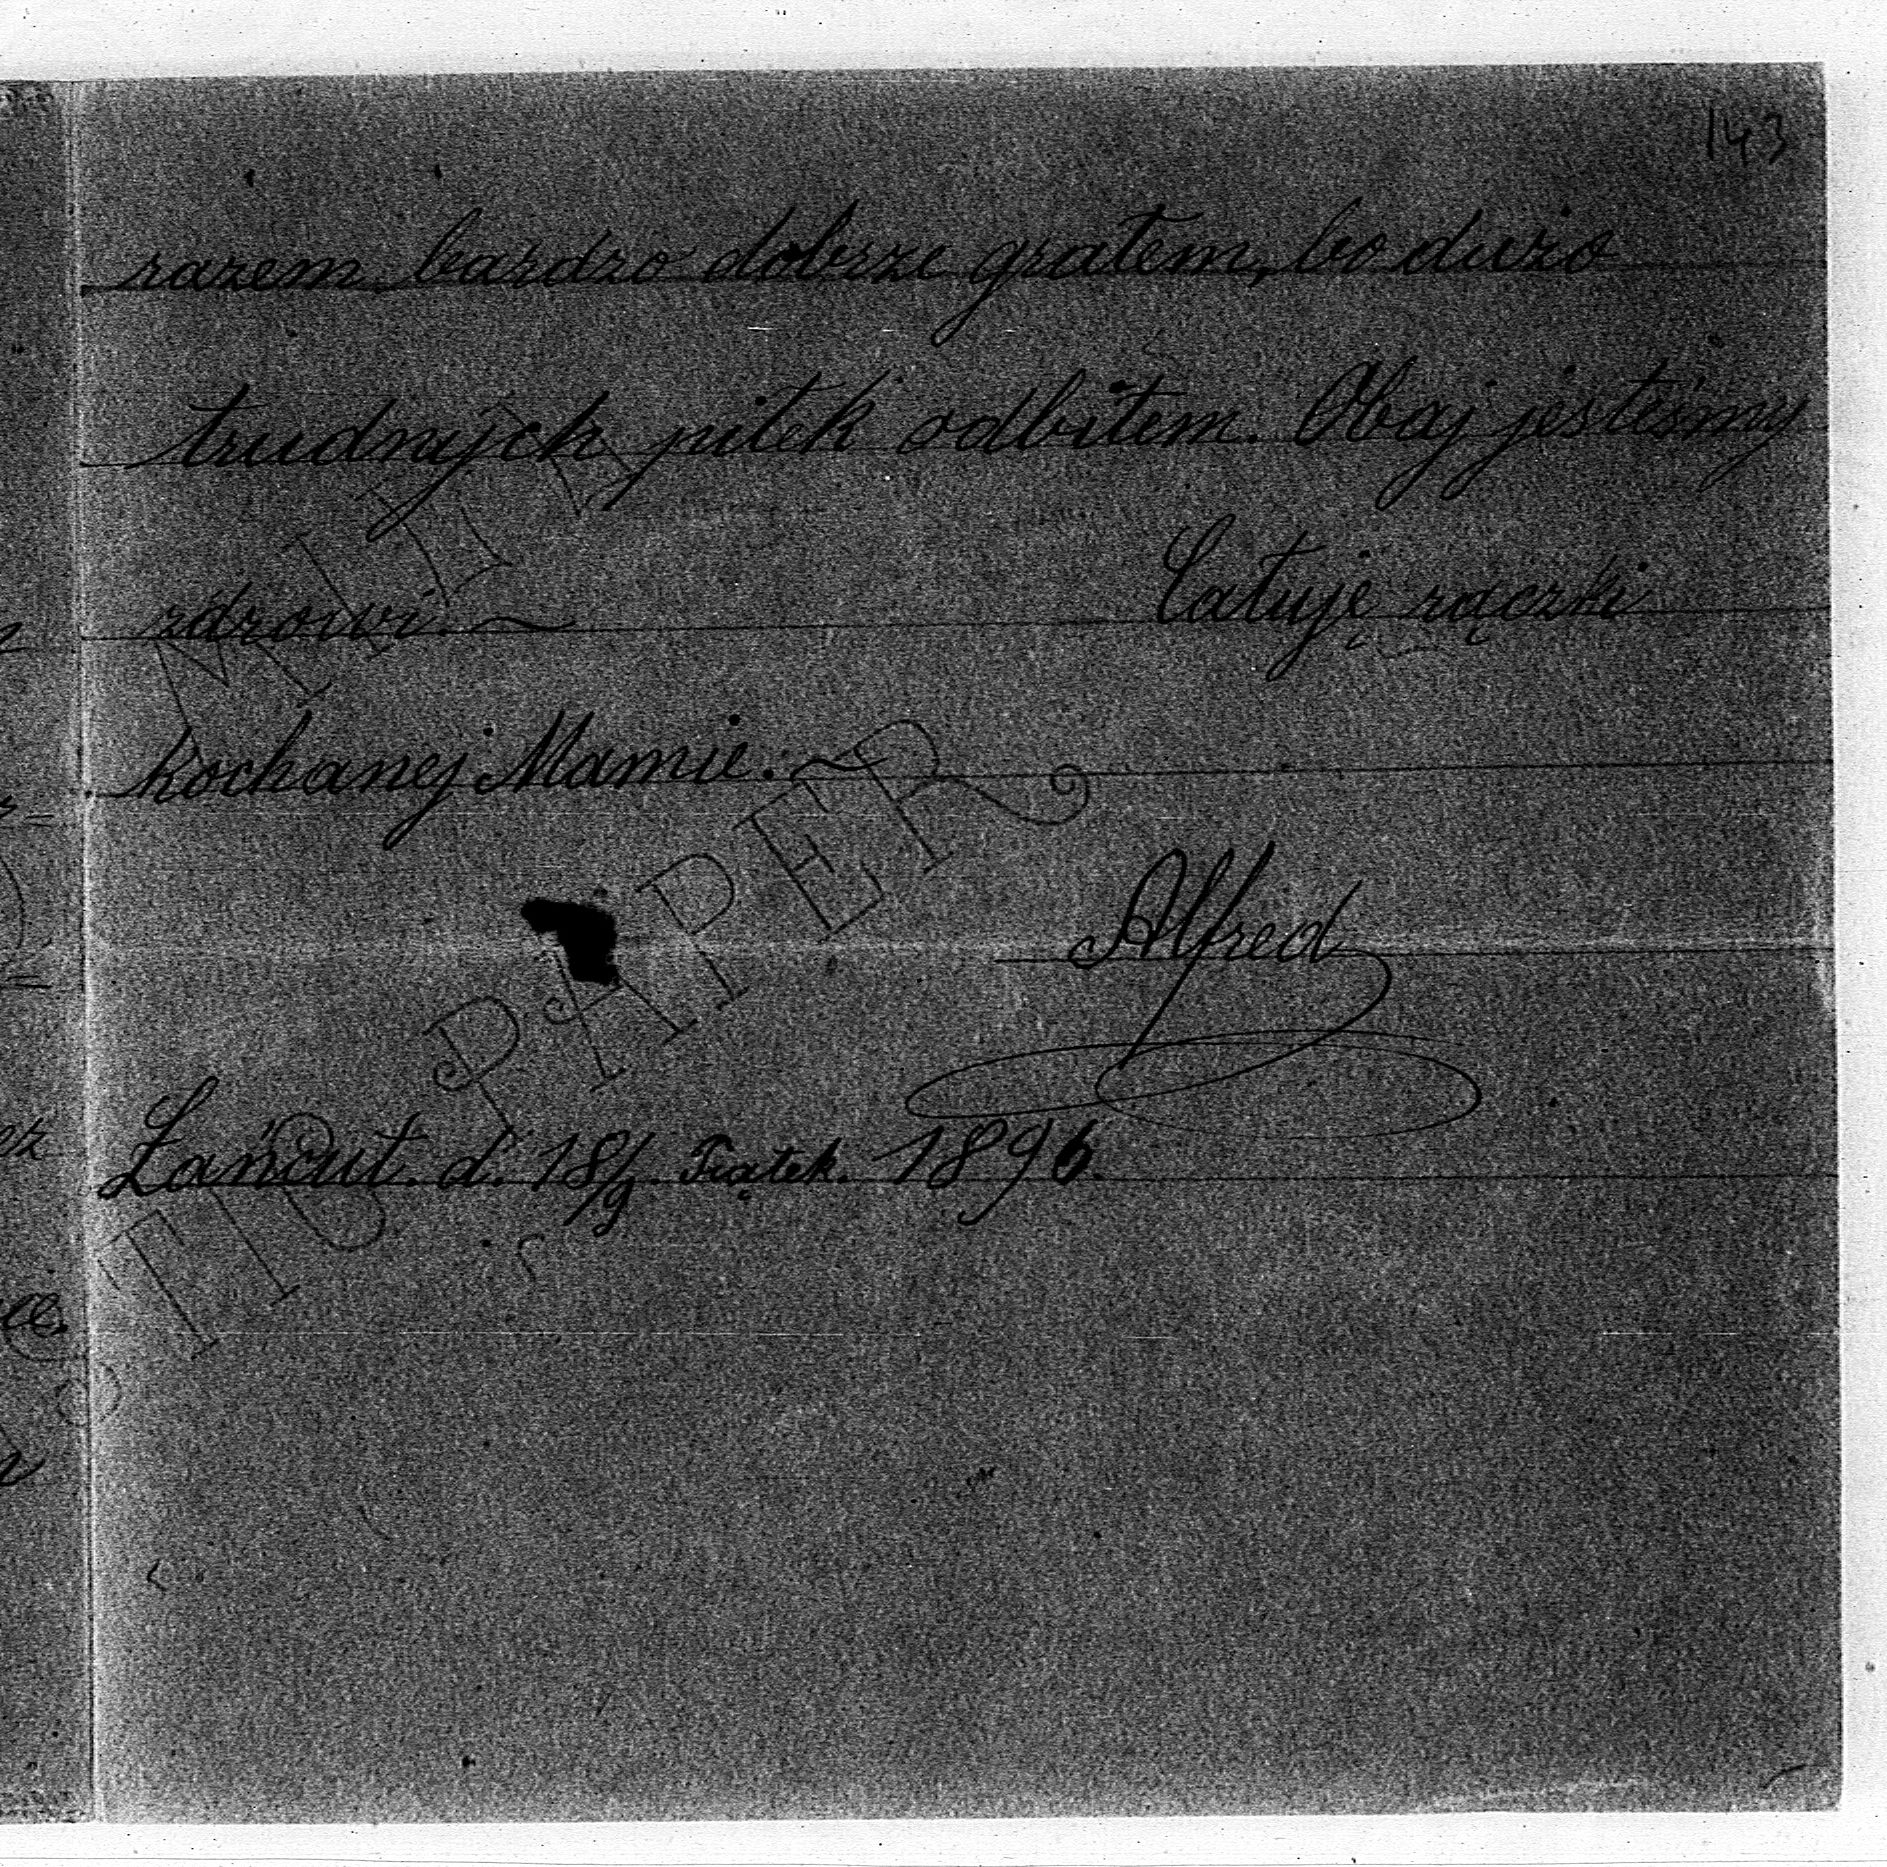 143
razem bardzo dobrze grałem, bo dużo
trudnych piłek odbiłem. Obaj jesteśmy
zdrowi. ~ Całuję rączki
kochanej Mamie. ~
Alfred
Łańcut. d. 18/9. Piątek. 1896.
PAPER